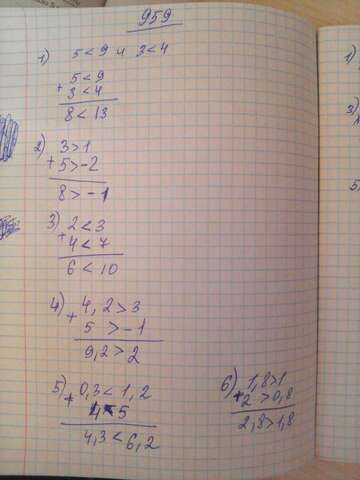 959
1) 5<9 и 3<4
5<9
+
3<4
8<13
2) 3>1
+
5>-2
8>-1
3) 2<3
+
4<7
6<10
4) 4,2>3
+
5 >-1
9,2>2
5) 0,3<1,2
+
4<5
4,3<6,2
6) 1,8>1
+
2 >0,8
2,8>1,8
1)
3)
5.